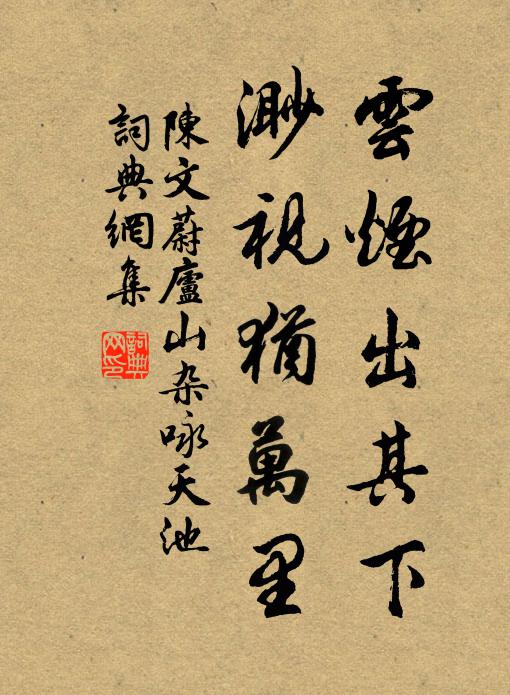 雲煙出其下
渺視猶萬里
陳文蔚廬山杂咏天池
詞典網集
詞典
网印